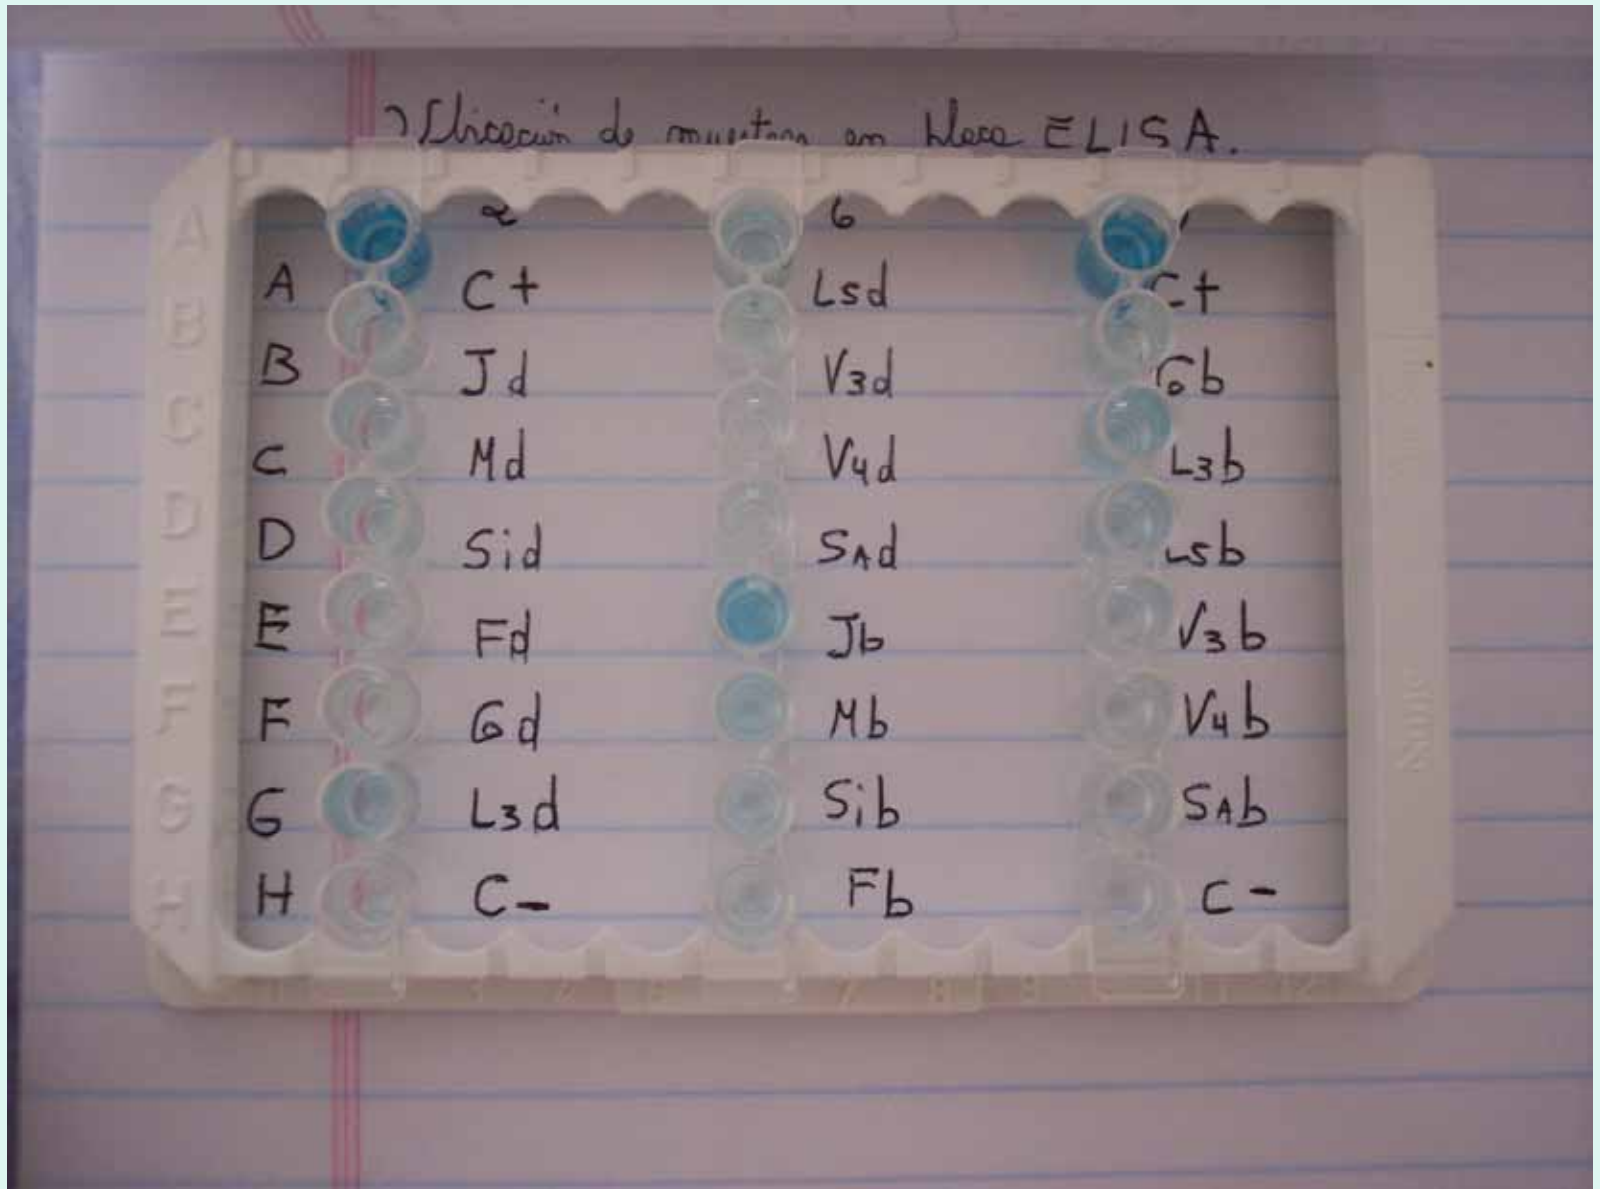 Ubicación de muestras en placa ELISA.
A 2 6
A C+ L5d C+
B B Jd V3d Gb
C C Md V4d L3b
D D Sid SAd L5b
E E Fd Jb V3b
F F Gd Mb V4b
G G L3d Sib SAb
H H C- Fb C-